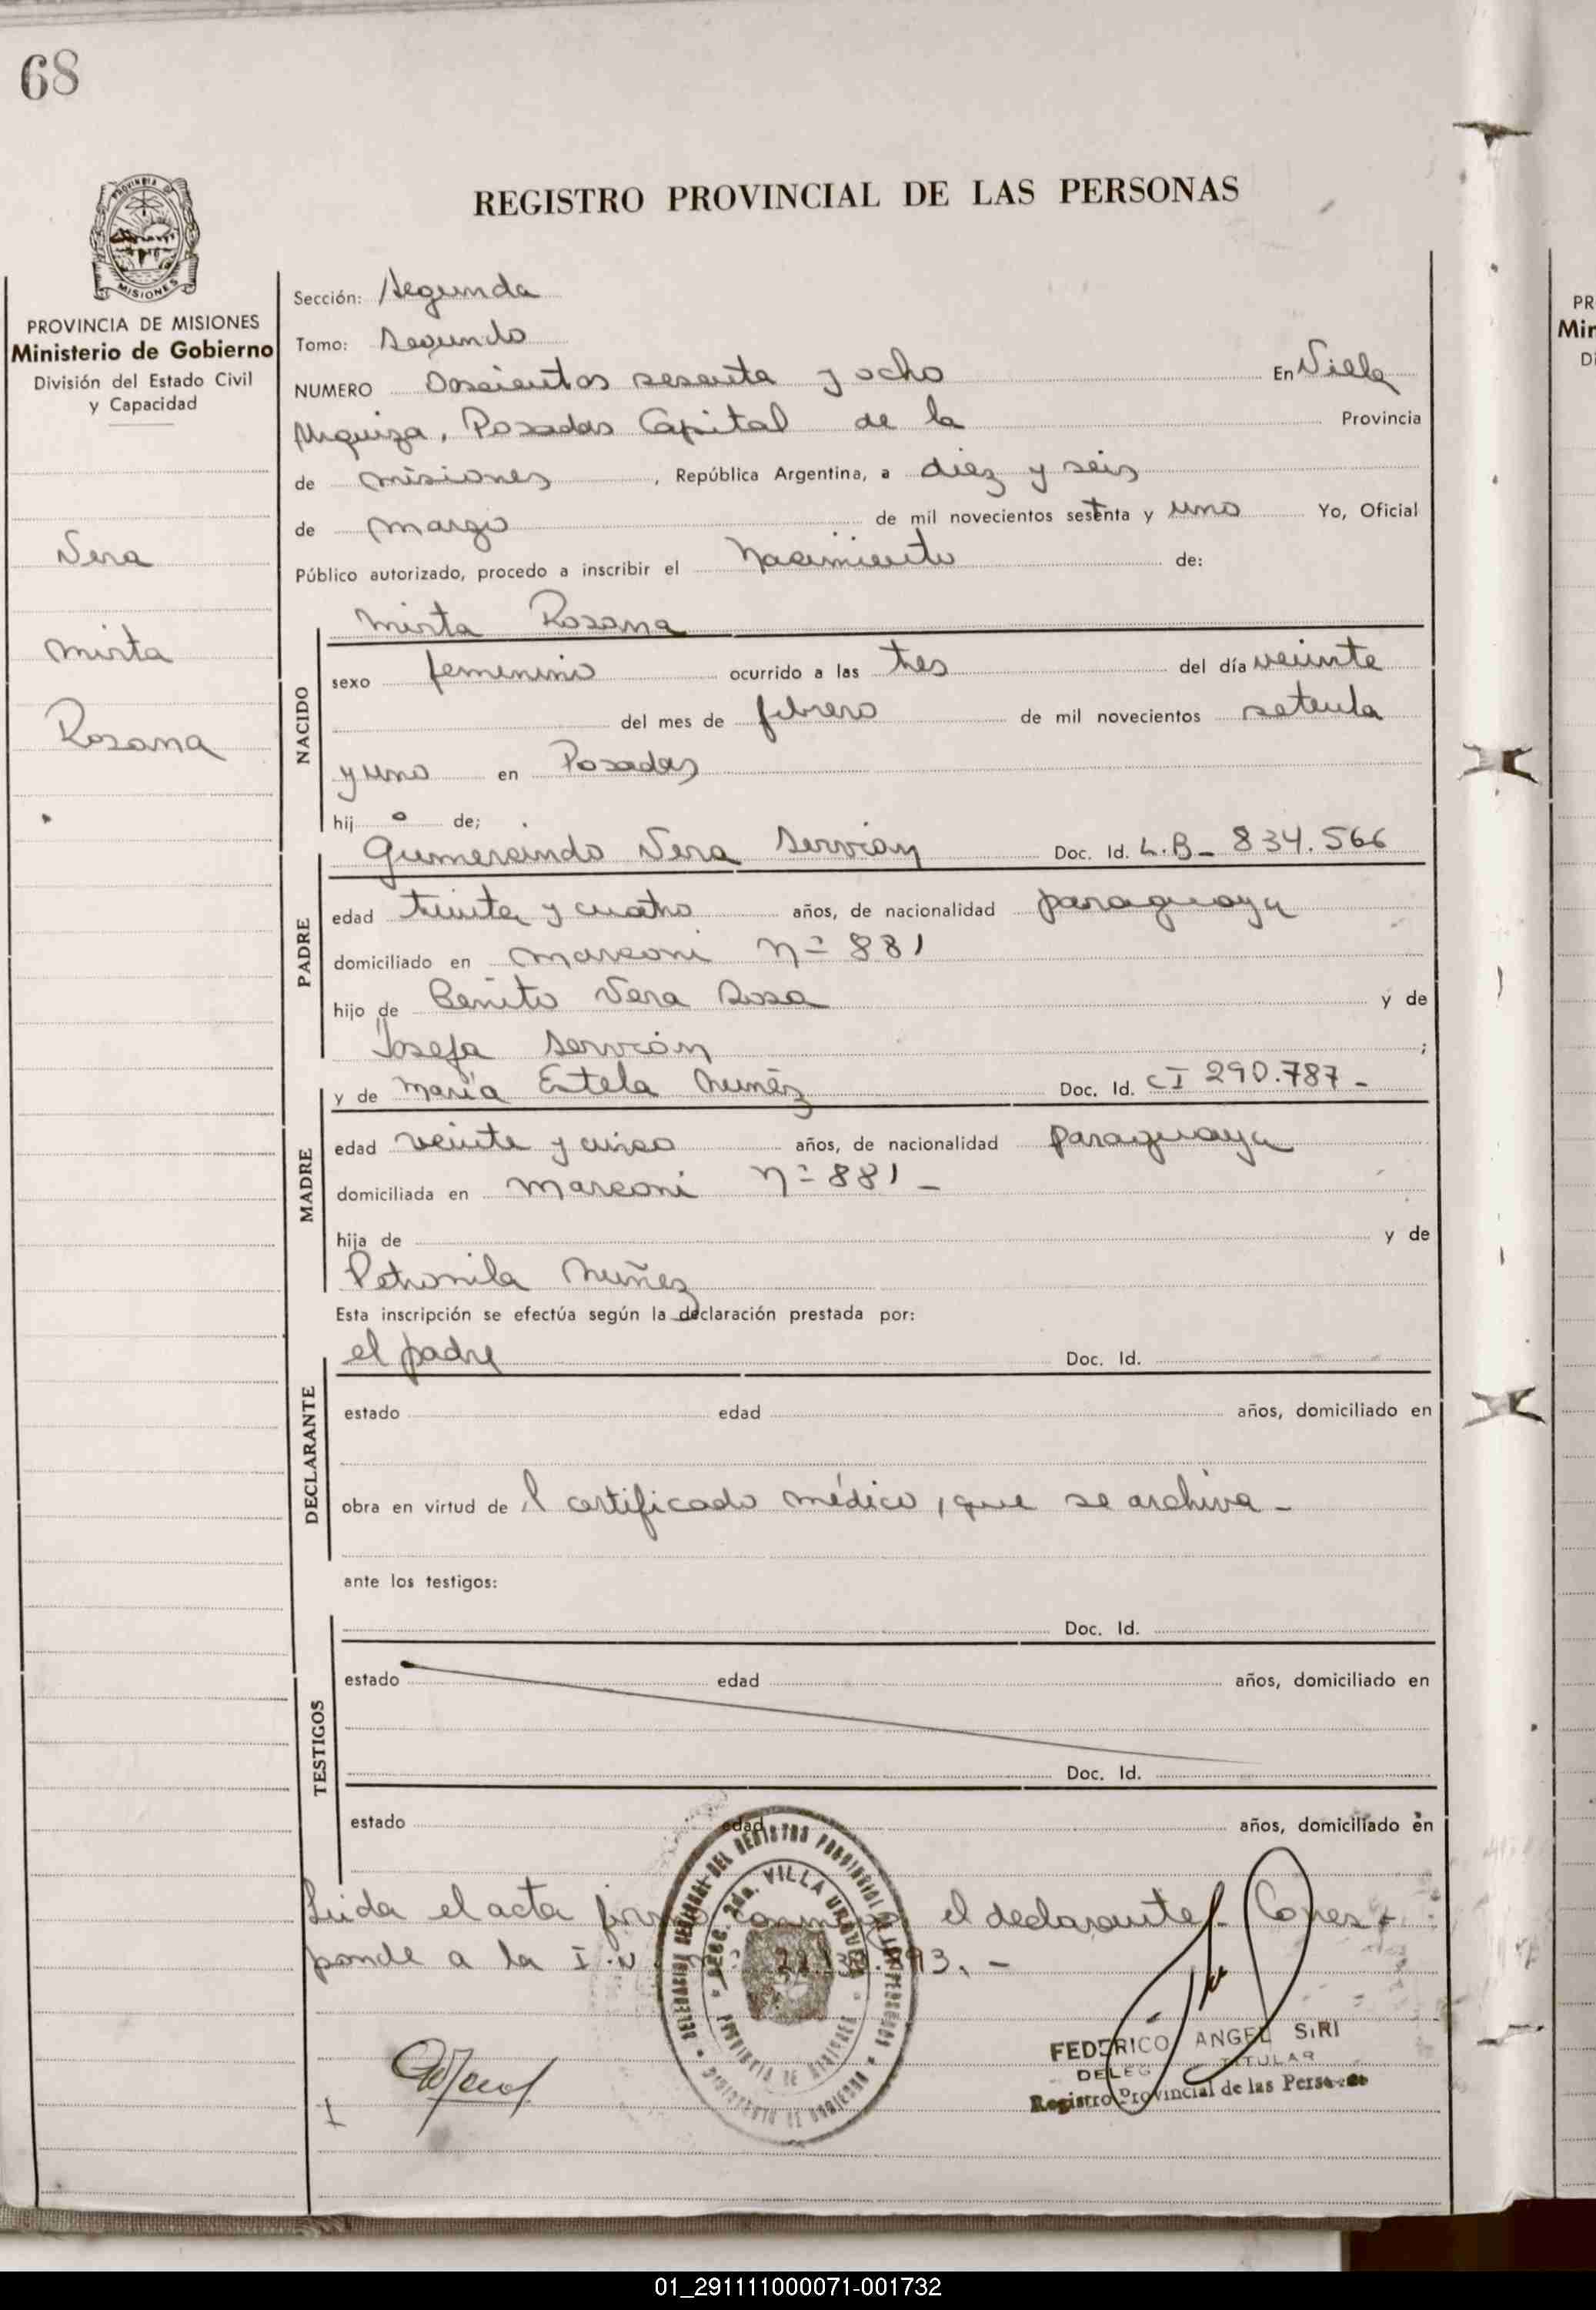 68
PROVINCIA DE MISIONES
PROVINCIA DE MISIONES
Ministerio de Gobierno
División del Estado Civil
y Capacidad
Vera
Mirta
Rosana
REGISTRO PROVINCIAL DE LAS PERSONAS
Sección: Segunda
Tomo: Segundo
NUMERO Doscientos sesenta y ocho En Villa
Urquiza, Posadas Capital de la Provincia
de Misiones, República Argentina, a diez y seis
de Marzo de mil novecientos setenta y uno Yo, Oficial
Público autorizado, procedo a inscribir el Nacimiento de:
Mirta Rosana
NACIDO
sexo femenino ocurrido a las tres del día veinte
del mes de febrero de mil novecientos setenta
y uno en Posadas
hij o de;
Gumercindo Vera Servián Doc. Id. L.B- 834.566
PADRE
edad treinta y cuatro años, de nacionalidad paraguaya
domiciliado en Marconi Nº 881
hijo de Benito Vera Sosa y de
Josefa Servián ;
y de María Estela Nuñéz Doc. Id. CI 290.787-
MADRE
edad veinte y cinco años, de nacionalidad paraguaya
domiciliada en Marconi Nº 881-
hija de y de
Petronila Nuñez
Esta inscripción se efectúa según la declaración prestada por:
el padre Doc. Id.
DECLARANTE
estado edad años, domiciliado en
obra en virtud de l certificado médico, que se archiva-
ante los testigos:
Doc. Id.
TESTIGOS
estado edad años, domiciliado en
Doc. Id.
estado edad años, domiciliado en
Leida el acta firma conmigo el declarante. Corres-
ponde a la I.N.
DELEGACION REGIONAL DEL REGISTRO PROVINCIAL DE LAS PERSONAS
SECC. 2da. VILLA URQUIZA
PROVINCIA DE MISIONES
MINISTERIO DE GOBIERNO
FEDERICO ANGEL SIRI
TITULAR
Registro Provincial de las Personas
PR
Min
Di
01_291111000071-001732